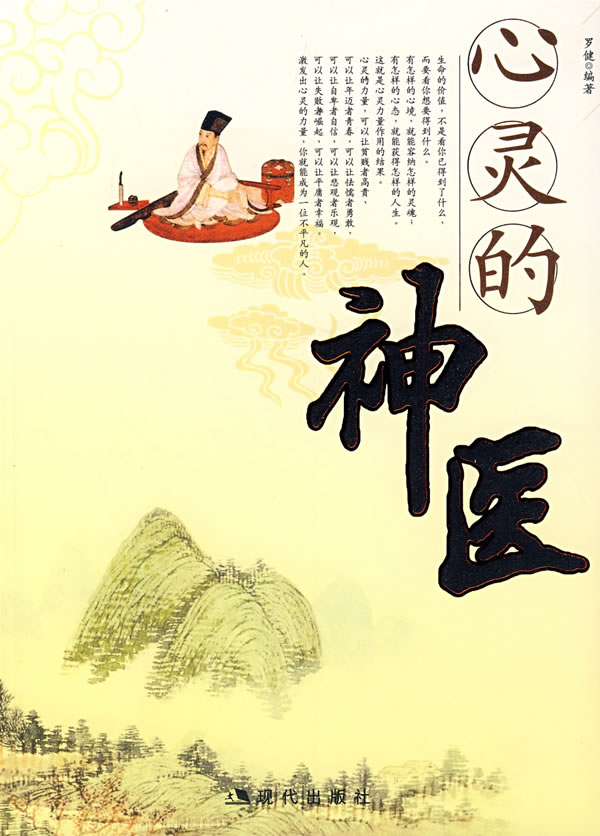 罗健◎编著
心灵的
神医
生命的价值，不是看你已得到了什么，
而要看你想要得到什么。
有怎样的心境，就能容纳怎样的灵魂；
有怎样的心态，就能获得怎样的人生。
这就是心灵力量作用的结果。
心灵的力量，可以让贫贱者高贵，
可以让年迈者青春，可以让怯懦者勇敢，
可以让自卑者自信，可以让悲观者乐观，
可以让失败者崛起，可以让平庸者幸福。
激发出心灵的力量，你就能成为一位不平凡的人。
现代出版社